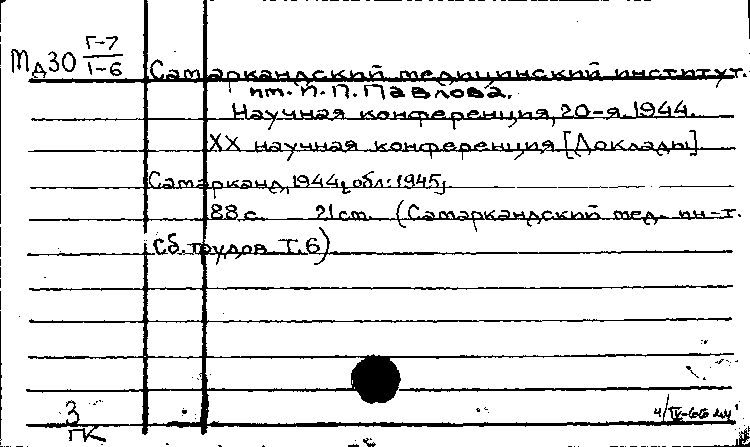 МД30 Г-7
1-6
Самаркандский медицинский институт.
им. И. П. Павлова.
Научная конференция, 20-я. 1944.
XX научная конференция [Доклады].
Самарканд, 1944, обл: 1945,
88 с. 21 cm. (Самаркандский мед. ин-т.
Сб. трудов Т. 6)
3
ГК